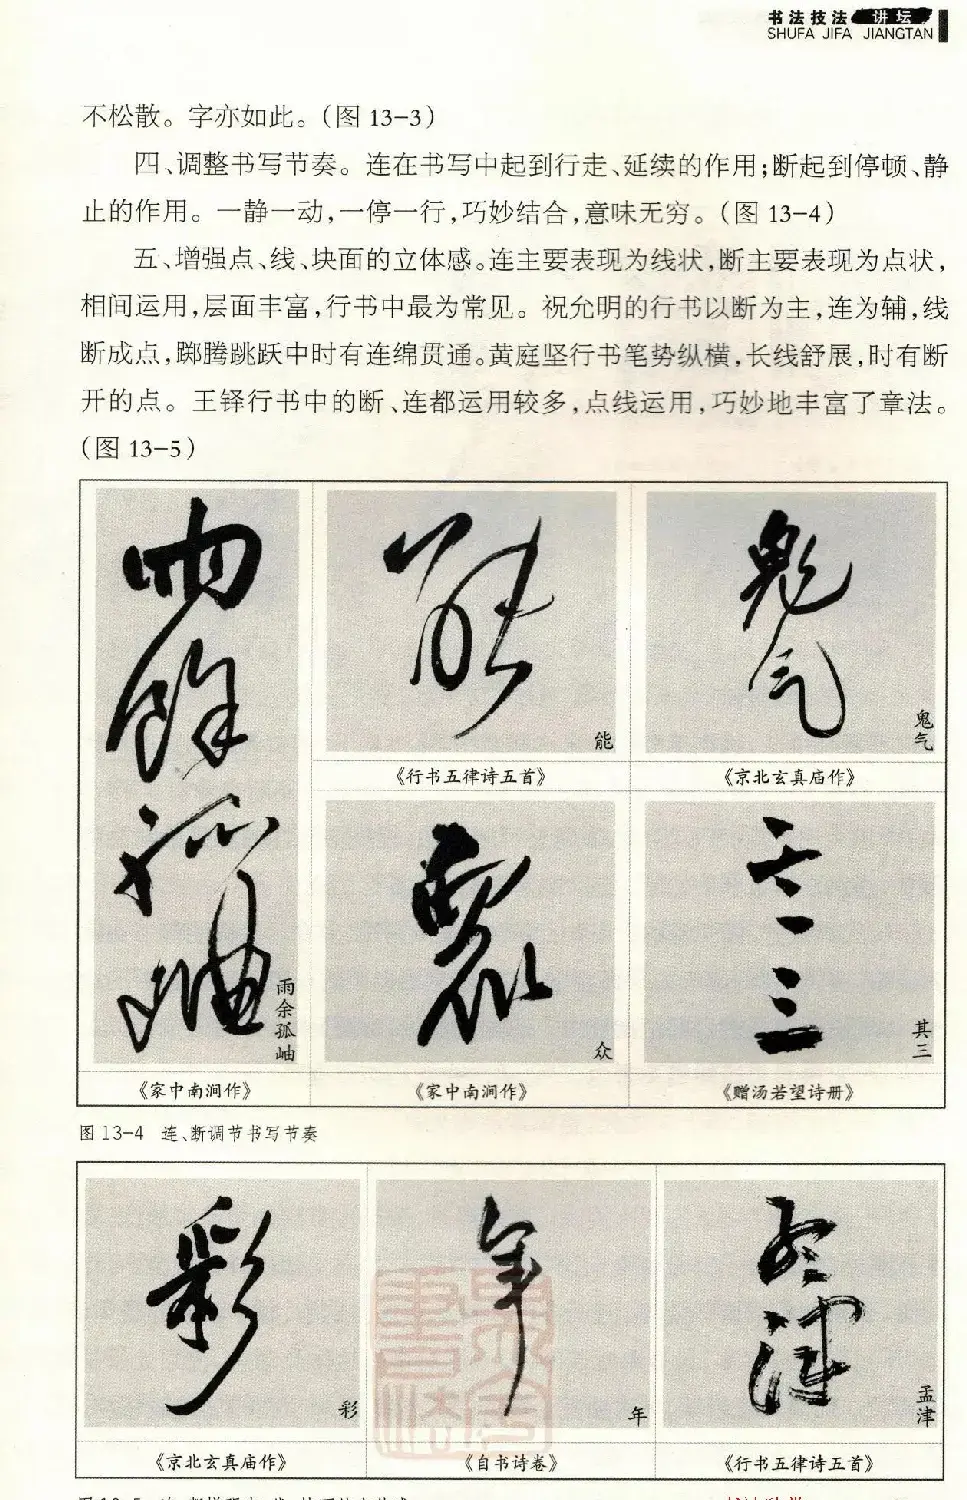 书法技法 讲坛
SHUFA JIFA JIANGTAN
不松散。字亦如此。(图 13-3)
四、调整书写节奏。连在书写中起到行走、延续的作用;断起到停顿、静
止的作用。一静一动,一停一行,巧妙结合,意味无穷。(图 13-4)
五、增强点、线、块面的立体感。连主要表现为线状,断主要表现为点状,
相间运用,层面丰富,行书中最为常见。祝允明的行书以断为主,连为辅,线
断成点,踯腾跳跃中时有连绵贯通。黄庭坚行书笔势纵横,长线舒展,时有断
开的点。王铎行书中的断、连都运用较多,点线运用,巧妙地丰富了章法。
(图 13-5)
雨余孤岫
雨余孤岫
《家中南涧作》
能
能
《行书五律诗五首》
鬼气
鬼气
《京北玄真庙作》
众
《家中南涧作》
其三
《赠汤若望诗册》
图 13-4 连、断调节书写节奏
彩
彩
《京北玄真庙作》
年
年
《自书诗卷》
孟津
孟津
《行书五律诗五首》